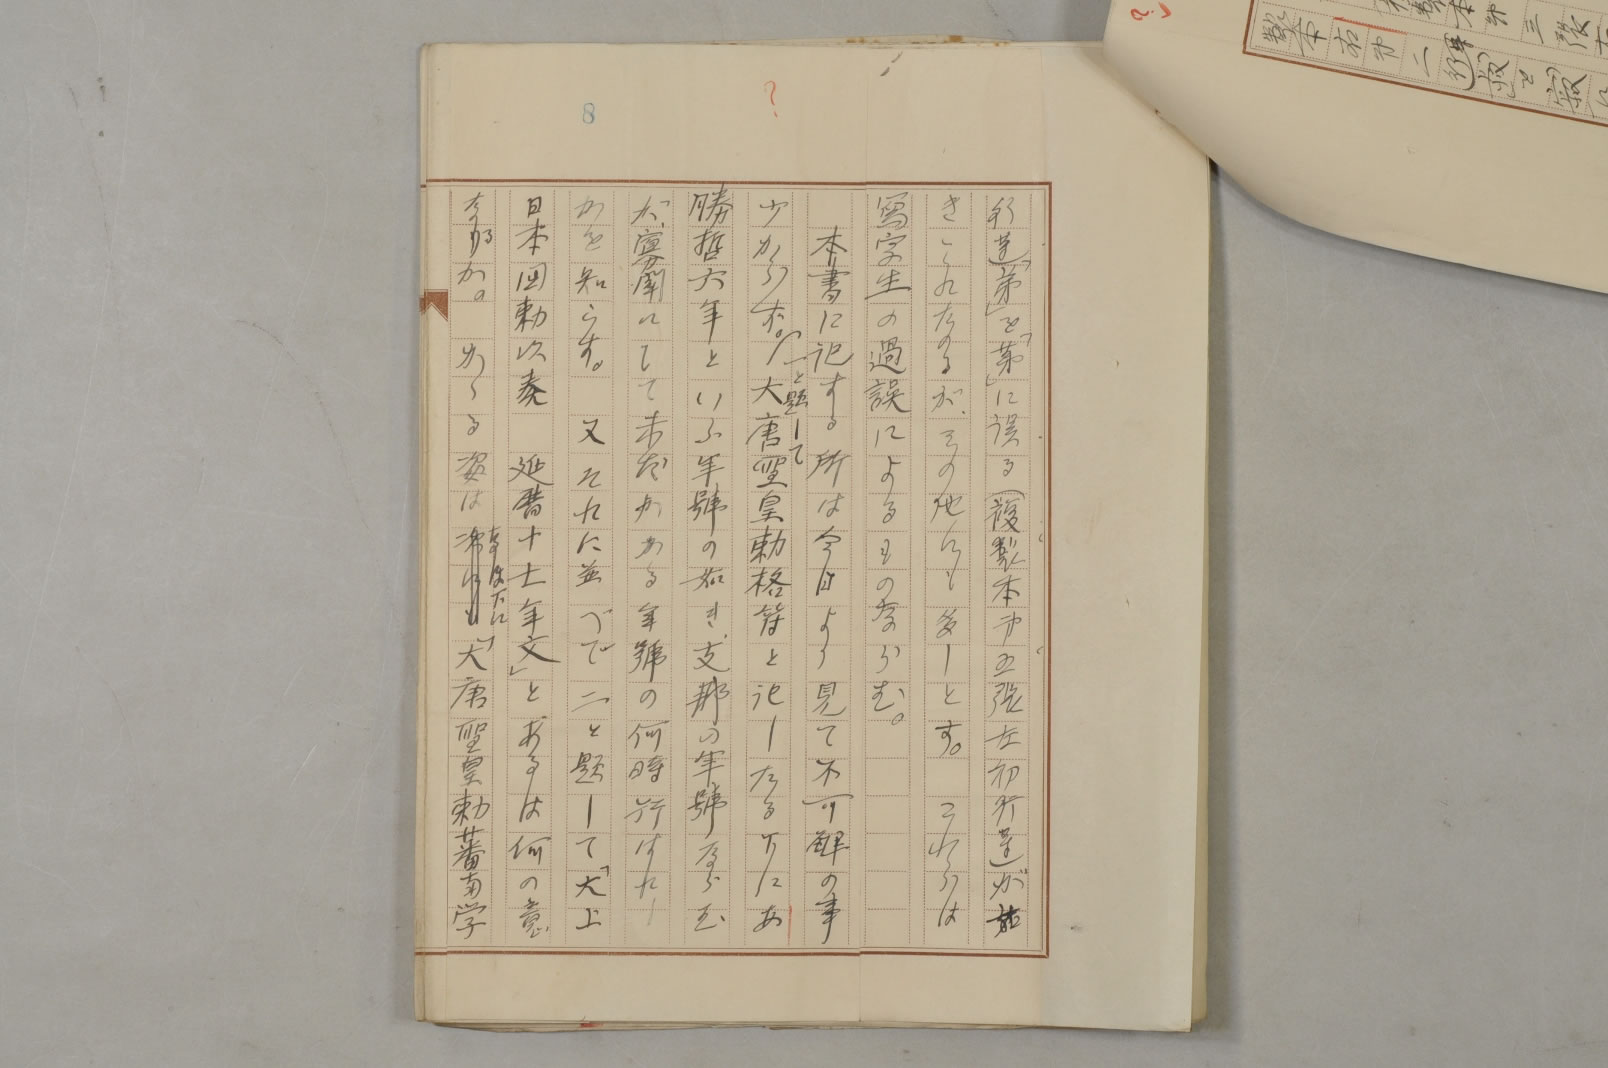 行道「弟」を「第」に誤る（複製本第五張左初行道）が如
きこれなるが、その他にも多しとす。これらは
寫字生の過誤によるものならむ。
本書に記する所は今日より見て不可解の事
少からず。「一と題して大唐聖皇勅格符と記したる下にあ
勝哲六年といふ年號の如き、支那の年號ならむ
が、寡聞にして未だかゝる年號の何時行はれし
かを知らず。又それに並べて二と題して「大上
日本国勅次奏 延暦十七年文」とあるは何の意
なるか。かゝる姿は なほ下に「大唐聖皇勅蕃南学
8
?